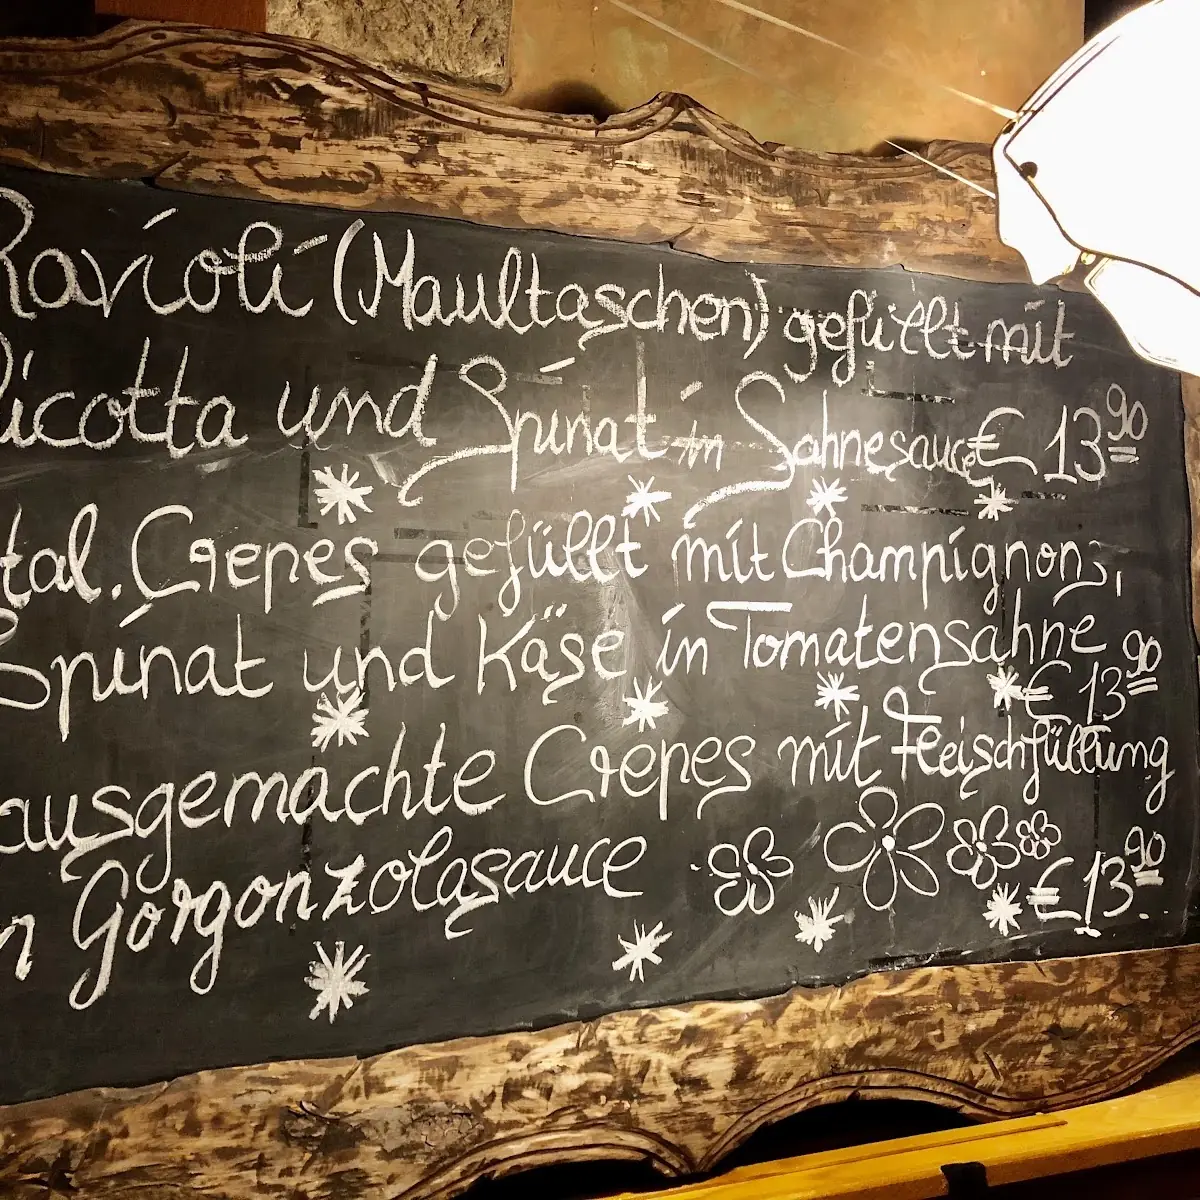 Ravioli (Maultaschen) gefüllt mit
Ricotta und Spinat in Sahnesauce € 13 90
tal. Crepes gefüllt mit Champignons,
Spinat und Käse in Tomatensahne
€ 13 90
ausgemachte Crepes mit Fleischfüllung
n Gorgonzolasauce € 13 90